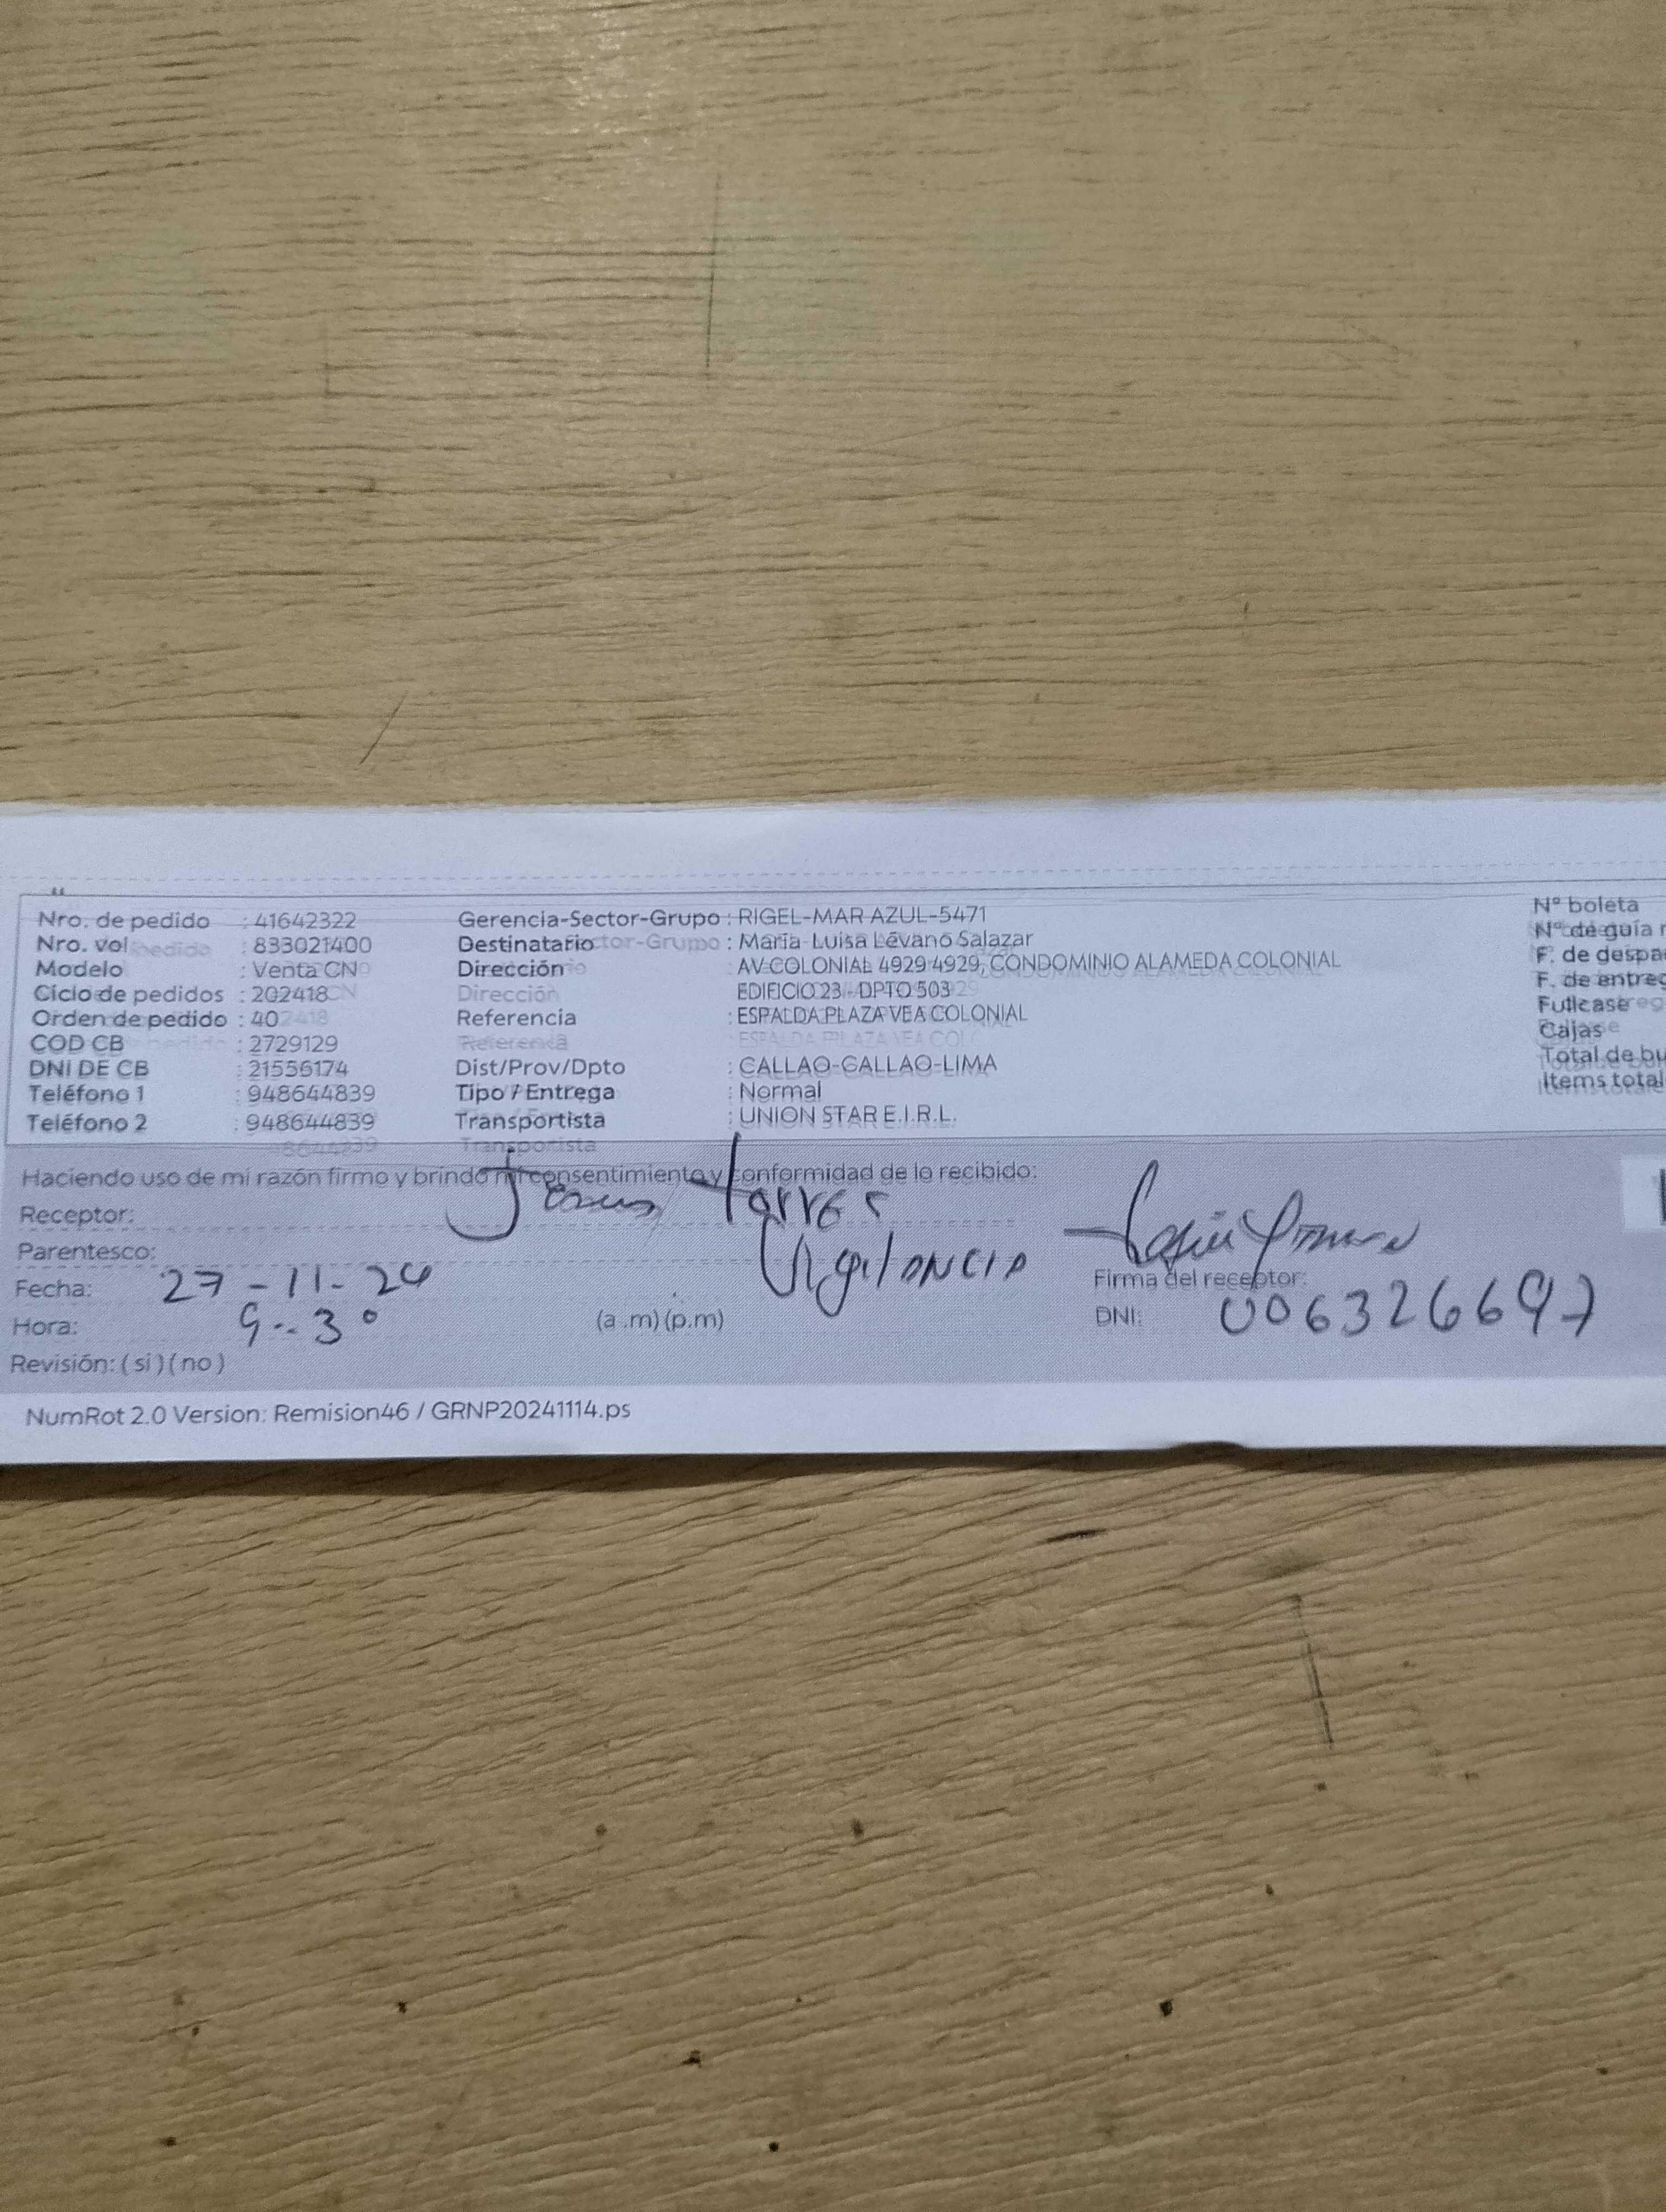 Nro. de pedido : 41642322 Gerencia-Sector-Grupo : RIGEL-MAR AZUL-5471 N° boleta
Nro. vol : 833021400 Destinatario : Maria Luisa Lévano Salazar N° de guía r
Modelo : Venta CN Dirección : AV COLONIAL 4929 4929, CONDOMINIO ALAMEDA COLONIAL F. de despa
Ciclo de pedidos : 202418 Dirección EDIFICIO 23 - DPTO 503 F. de entreg
Orden de pedido : 40 Referencia : ESPALDA PLAZA VEA COLONIAL Fullcase
COD CB : 2729129 Referencia ESPALDA PLAZA VEA COL Cajas
DNI DE CB : 21556174 Dist/Prov/Dpto : CALLAO-CALLAO-LIMA Total de bu
Teléfono 1 : 948644839 Tipo / Entrega : Normal Items total
Teléfono 2 : 948644839 Transportista : UNION STAR E.I.R.L.
Transportista
Haciendo uso de mi razón firmo y brindo mi consentimiento y conformidad de lo recibido:
Receptor: Torres
Parentesco: Vigilancia
Fecha: 27-11-24 Firma del receptor:
Hora: 9:30 (a .m) (p.m) DNI: 006326697
Revisión: ( si ) ( no )
NumRot 2.0 Version: Remision46 / GRNP20241114.ps